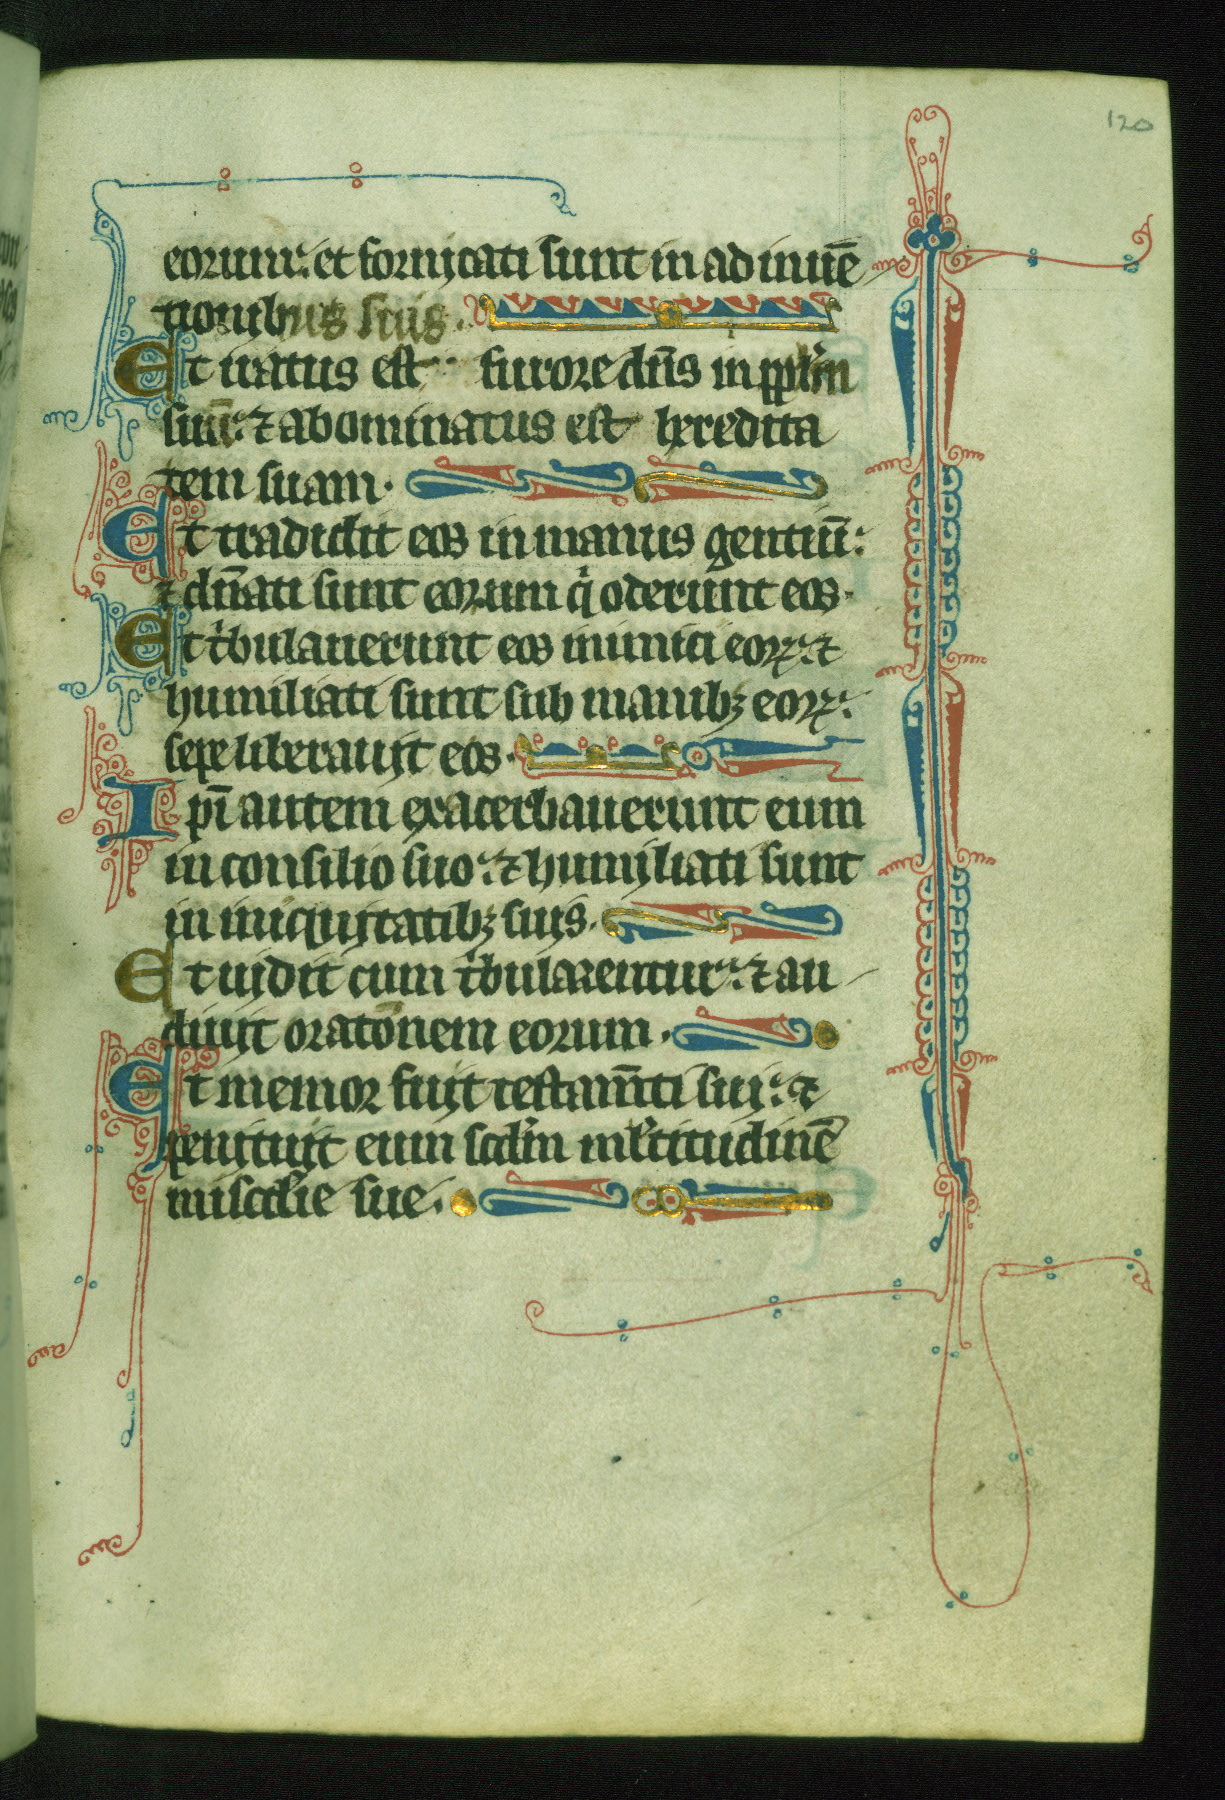 120
eorum: et fornicati sunt in ad inuē
tionibus suis.
Et iratus est furore dn̄s in pp̄lm
suū: ⁊ abominatus est heredita
tem suam.
Et tradidit eos in manus gentiū:
⁊ dn̄ati sunt eorum q̇ oderunt eos.
Et tͥbulauerunt eos inimici eoꝝ: ⁊
humiliati sunt sub manibꝫ eoꝝ:
sepe liberauit eos.
Ipī autem exacerbauerunt eum
in consilio suo: ⁊ humiliati sunt
in iniquitatibꝫ suis.
Et uidit cum tͥbularentur: ⁊ au
diuit oratōnem eorum.
Et memor fuit testam̄ti sui: ⁊
penituit eum scd̄m ml̄titudinē
miscd̄ie sue.